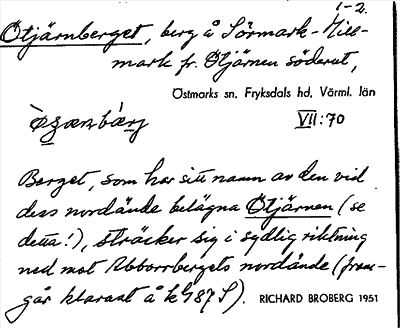 1-2.
Ötjärnberget, berg å Sörmark-Mill-
mark fr. Ötjärnen söderut,
Östmarks sn, Fryksdals hd, Värml. län
VII:70
Berget, som har sitt namn av den vid
dess nordände belägna Ötjärnen (se
detta!), sträcker sig i sydlig riktning
ned mot Abborrbergets nordände (fram-
går klarast å k G 87 S). RICHARD BROBERG 1951